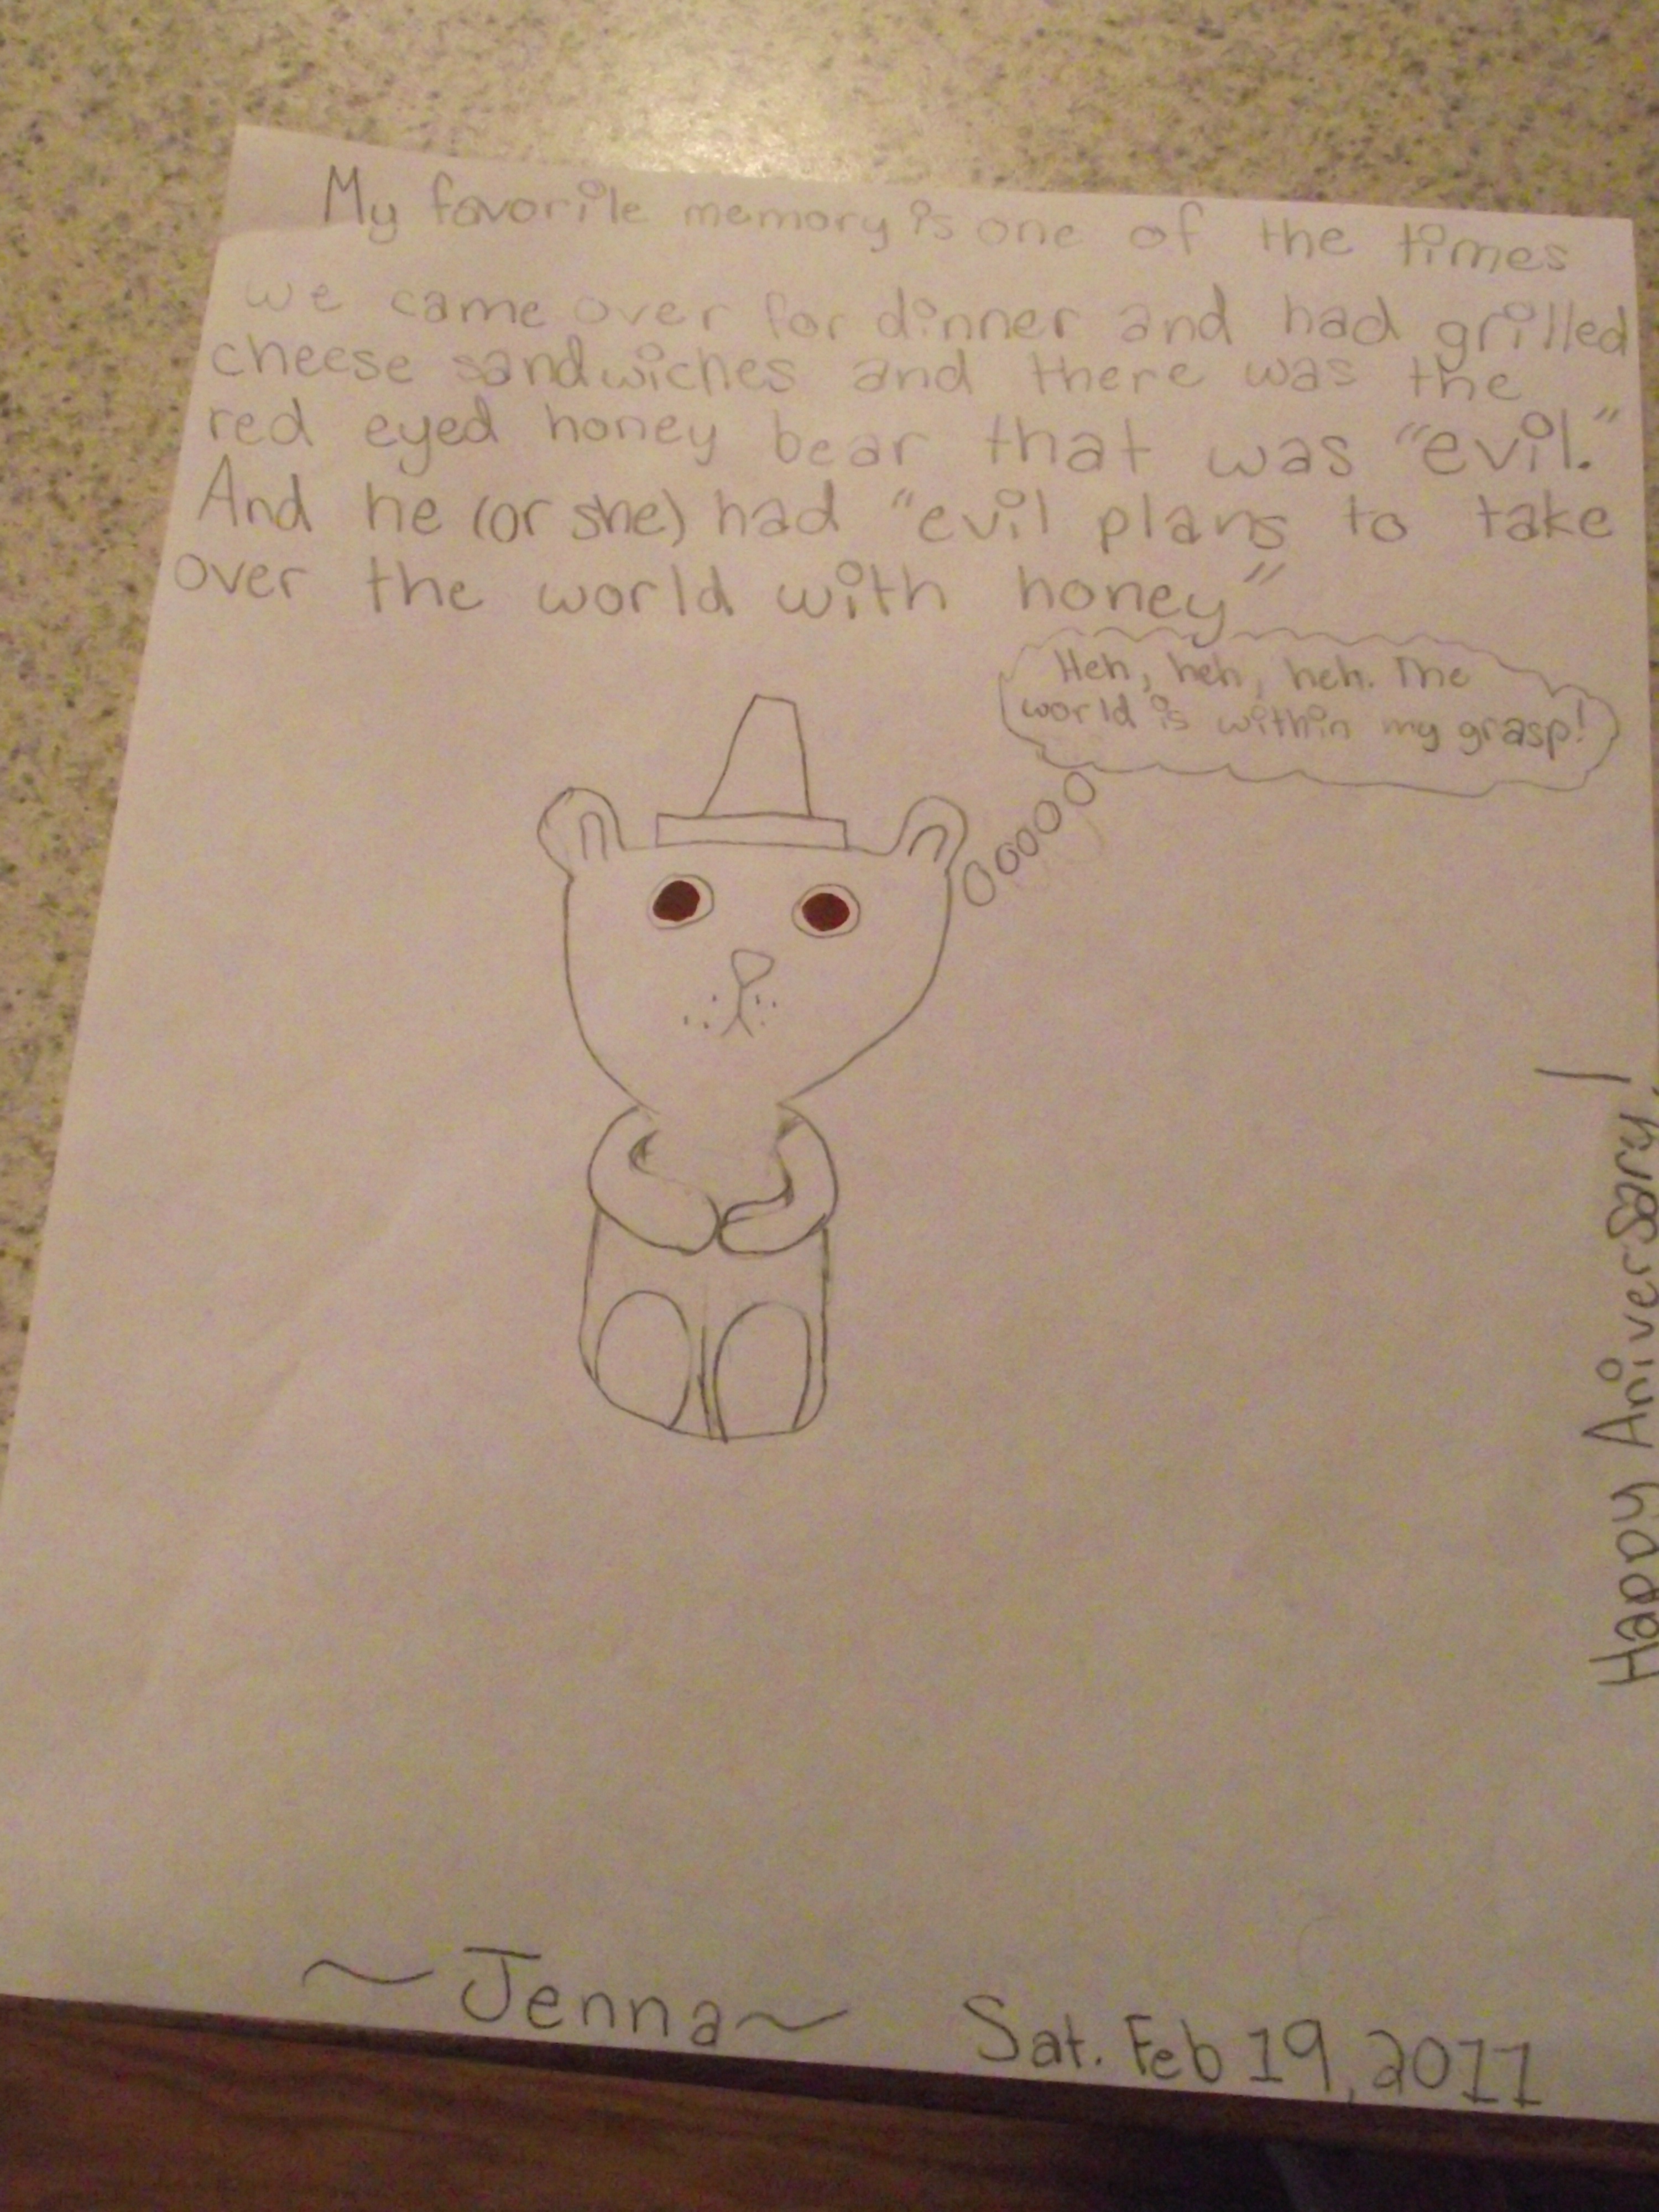 My favorite memory is one of the times
we came over for dinner and had grilled
cheese sandwiches and there was the
red eyed honey bear that was "evil."
And he (or she) had "evil plans to take
over the world with honey"
Heh, heh, heh. The
world is within my grasp!
Happy Aniversary!
~Jenna~ Sat. Feb 19, 2011